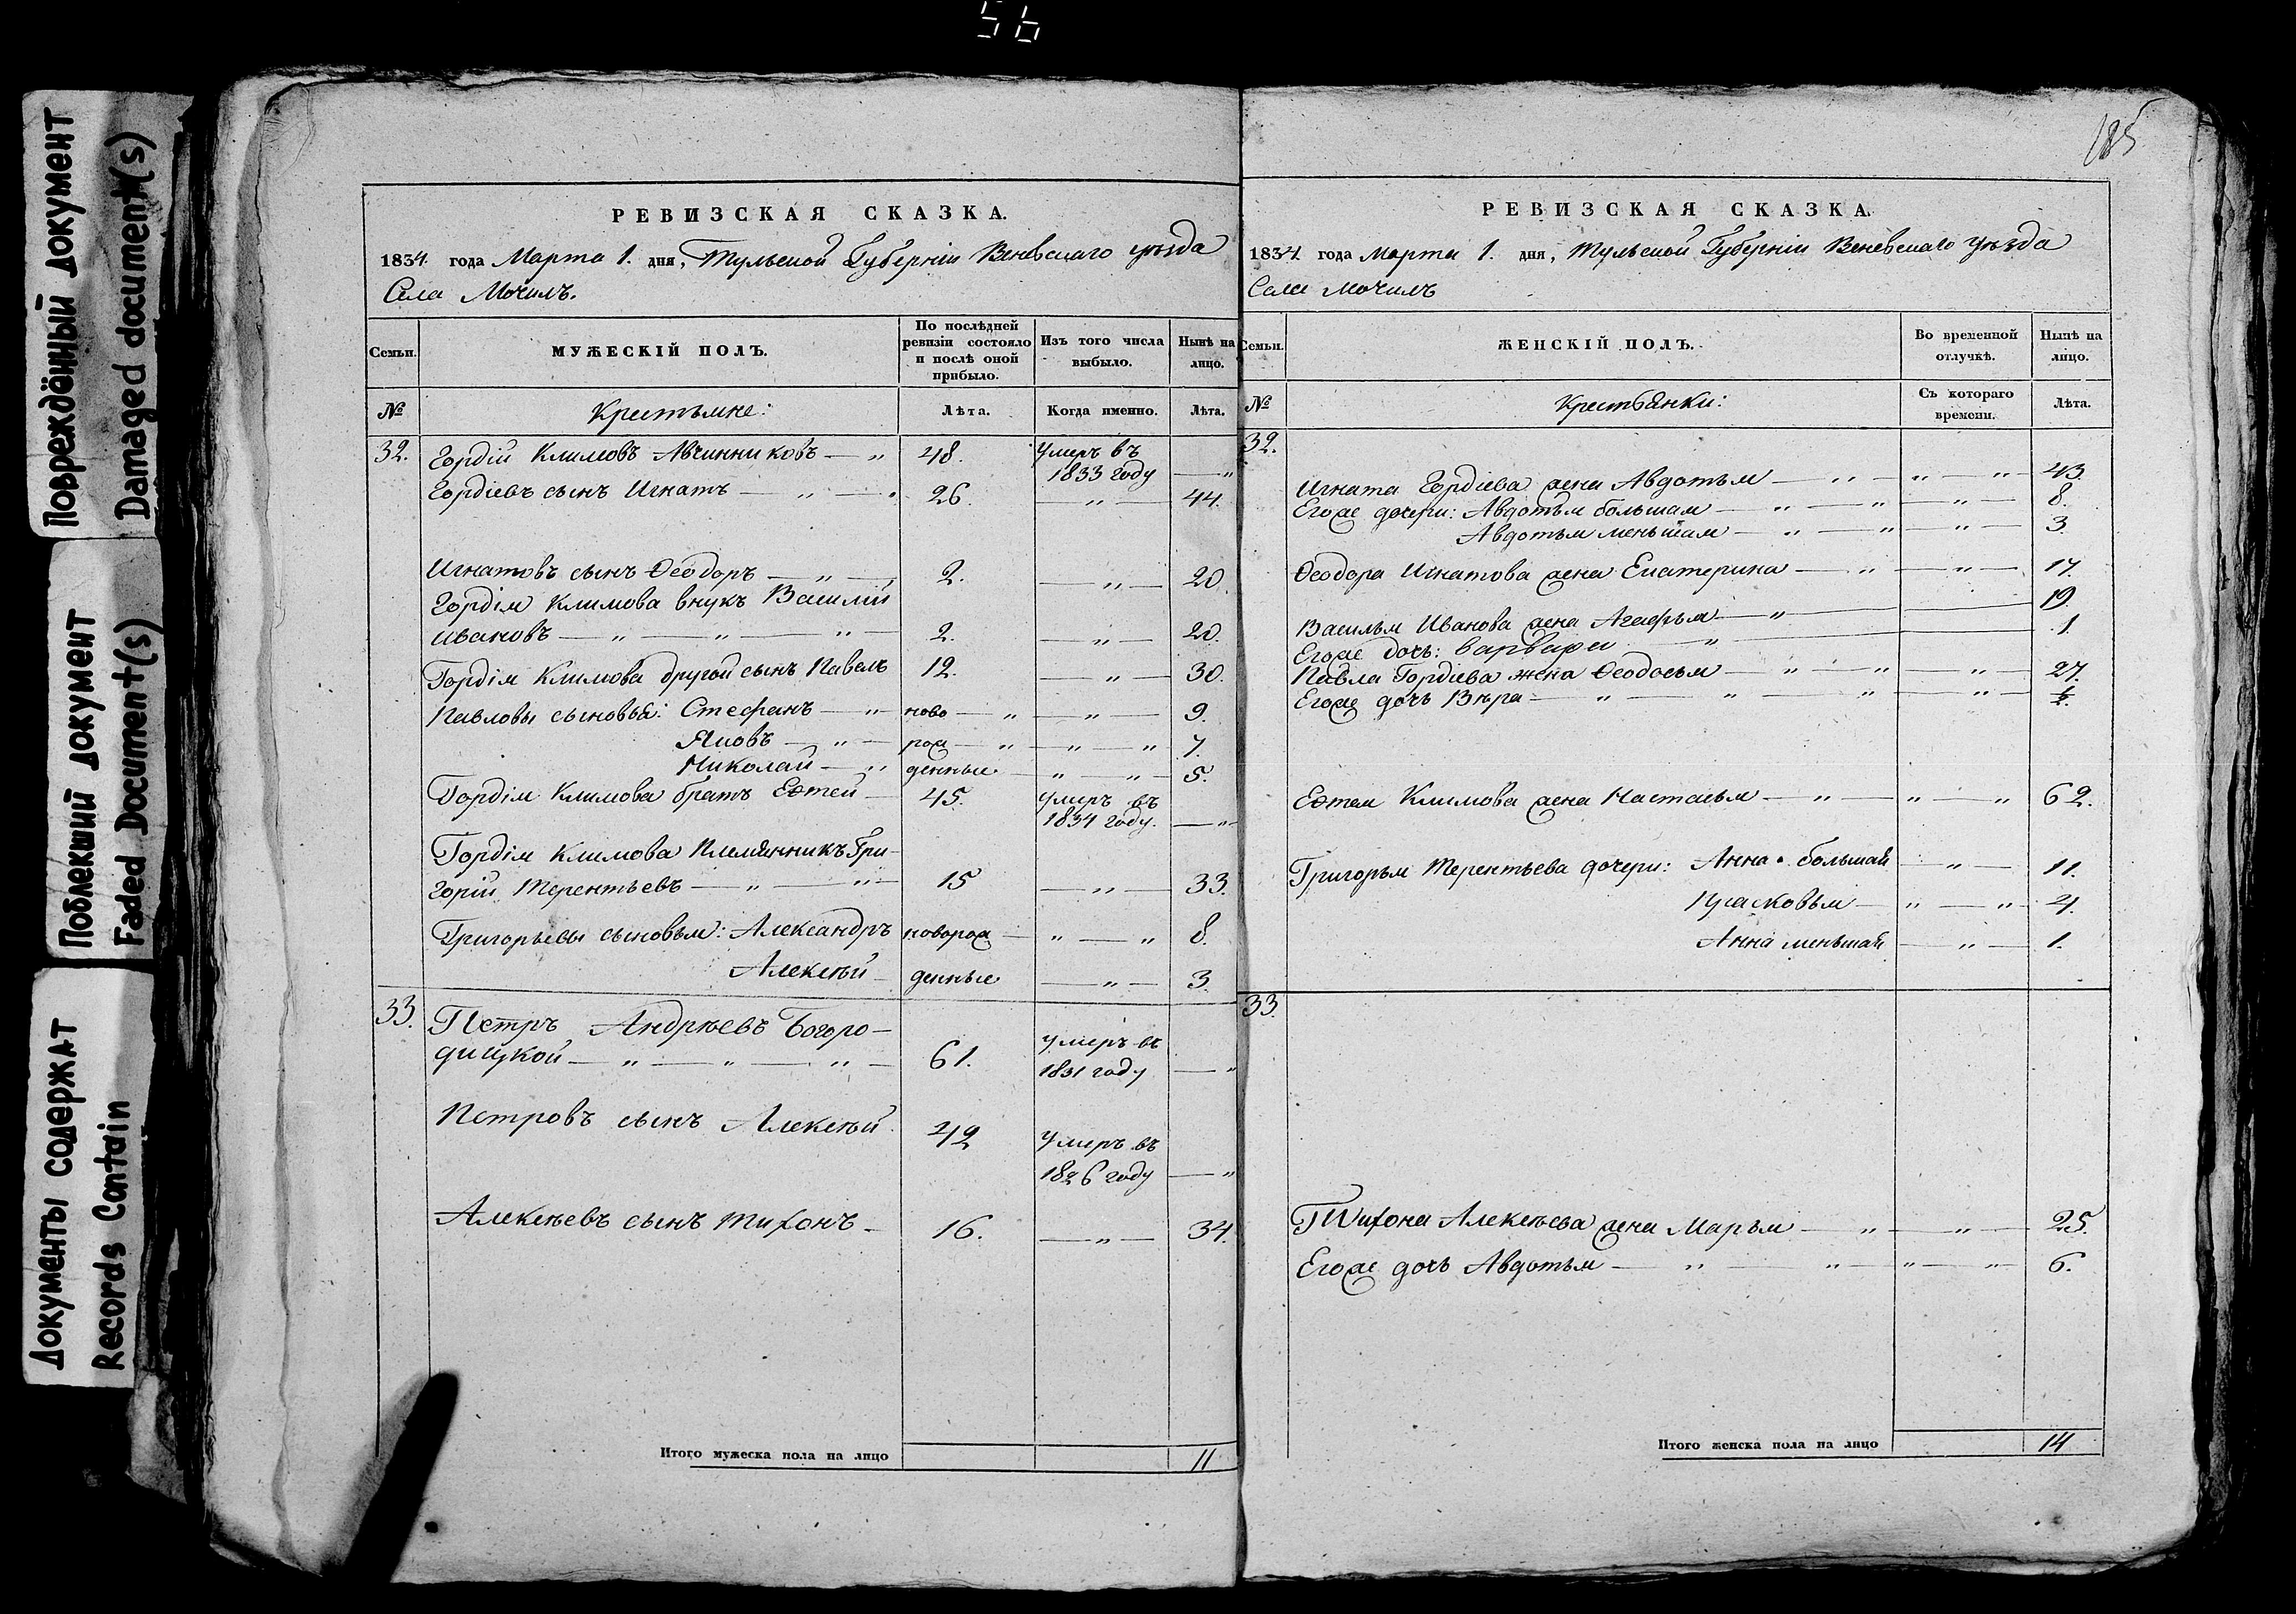 56
Повреждённый документ
Damaged document(s)
Поблекший документ
Faded Document(s)
Документы содержат
Records Contain
РЕВИЗСКАЯ СКАЗКА.
1834 года Марта 1. дня, Тульской Губерніи Веневскаго уѣзда
Села Мочилъ.
Семьи. МУЖЕСКІЙ ПОЛЪ. По послѣдней ревизіи состояло и послѣ оной прибыло. Изъ того числа выбыло. Нынѣ на лицо.
№ Крестьяне: Лѣта. Когда именно. Лѣта.
32. Гордій Климовъ Авчинниковъ — „ 48. Умеръ въ
1833 году — „
Гордіевъ сынъ Игнатъ — „ — 26. — „ — 44.
Игнатовъ сынъ Ѳеодоръ — „ — 2. — „ — 20.
Гордія Климова внукъ Василій
Ивановъ — „ — „ — „ — 2. — „ — 20.
Гордія Климова другой сынъ Павелъ 12. — „ — 30.
Павловы сыновья: Стефанъ — „ ново — „ — „ — 9.
Яковъ — „ — рож — „ — „ — „ 7.
Николай — „ денные — „ — „ — 5.
Гордія Климова братъ Евтей — 45. Умеръ въ
1834 году. — „
Гордія Климова Племянникъ Гри-
горій Терентьевъ — „ — „ — 15 — „ — 33.
Григорьевы сыновья: Александръ новорож — „ — „ 8.
Алексѣй — денные — „ — 3.
33. Петръ Андрѣевъ Богоро-
дицкой — „ — „ — „ — 61. умеръ въ
1831 году — „
Петровъ сынъ Алексѣй. 42 Умеръ въ
1826 году — „
Алексѣевъ сынъ Тихонъ — 16. — „ — 34.
Итого мужеска пола на лицо 11
185
РЕВИЗСКАЯ СКАЗКА.
1834 года Марта 1. дня, Тульской Губерніи Веневскаго уѣзда
Села Мочилъ
Семьи. ЖЕНСКІЙ ПОЛЪ. Во временной отлучкѣ. Нынѣ на лицо.
№ Крестьянки: Съ котораго времени. Лѣта.
32.
Игната Гордіева жена Авдотья — „ — „ — „ — 43.
Егоже дочери: Авдотья большая — „ — „ — „ — 8.
Авдотья меньшая — „ — „ — „ — 3.
Ѳеодора Игнатова жена Екатерина — „ — „ — 17.
Василья Иванова жена Агафья — „ — 19.
Егоже дочь: Варвара — „ — 1.
Павла Гордіева жена Ѳеодосья — „ — „ — „ — 27.
Егоже дочь Вѣра — „ — „ — „ — „ —
Евтея Климова жена Настасья — „ — „ — „ 62.
Григорья Терентьева дочери: Анна большая — „ — 11.
Прасковья — „ — „ — 4.
Анна меньшая — „ — 1.
33.
Тихона Алексѣева жена Марья — „ — „ — 25.
Егоже дочь Авдотья — „ — „ — „ — „ — 6.
Итого женска пола на лицо 14